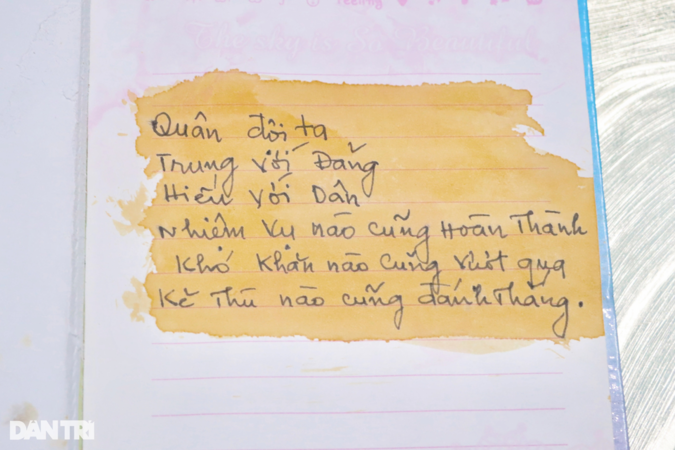 The sky is so beautiful
Quân đội ta
Trung với Đảng
Hiếu với Dân
Nhiệm vụ nào cũng Hoàn Thành
Khó Khăn nào cũng vượt qua
Kẻ Thù nào cũng đánh Thắng.
DÂN TRÍ